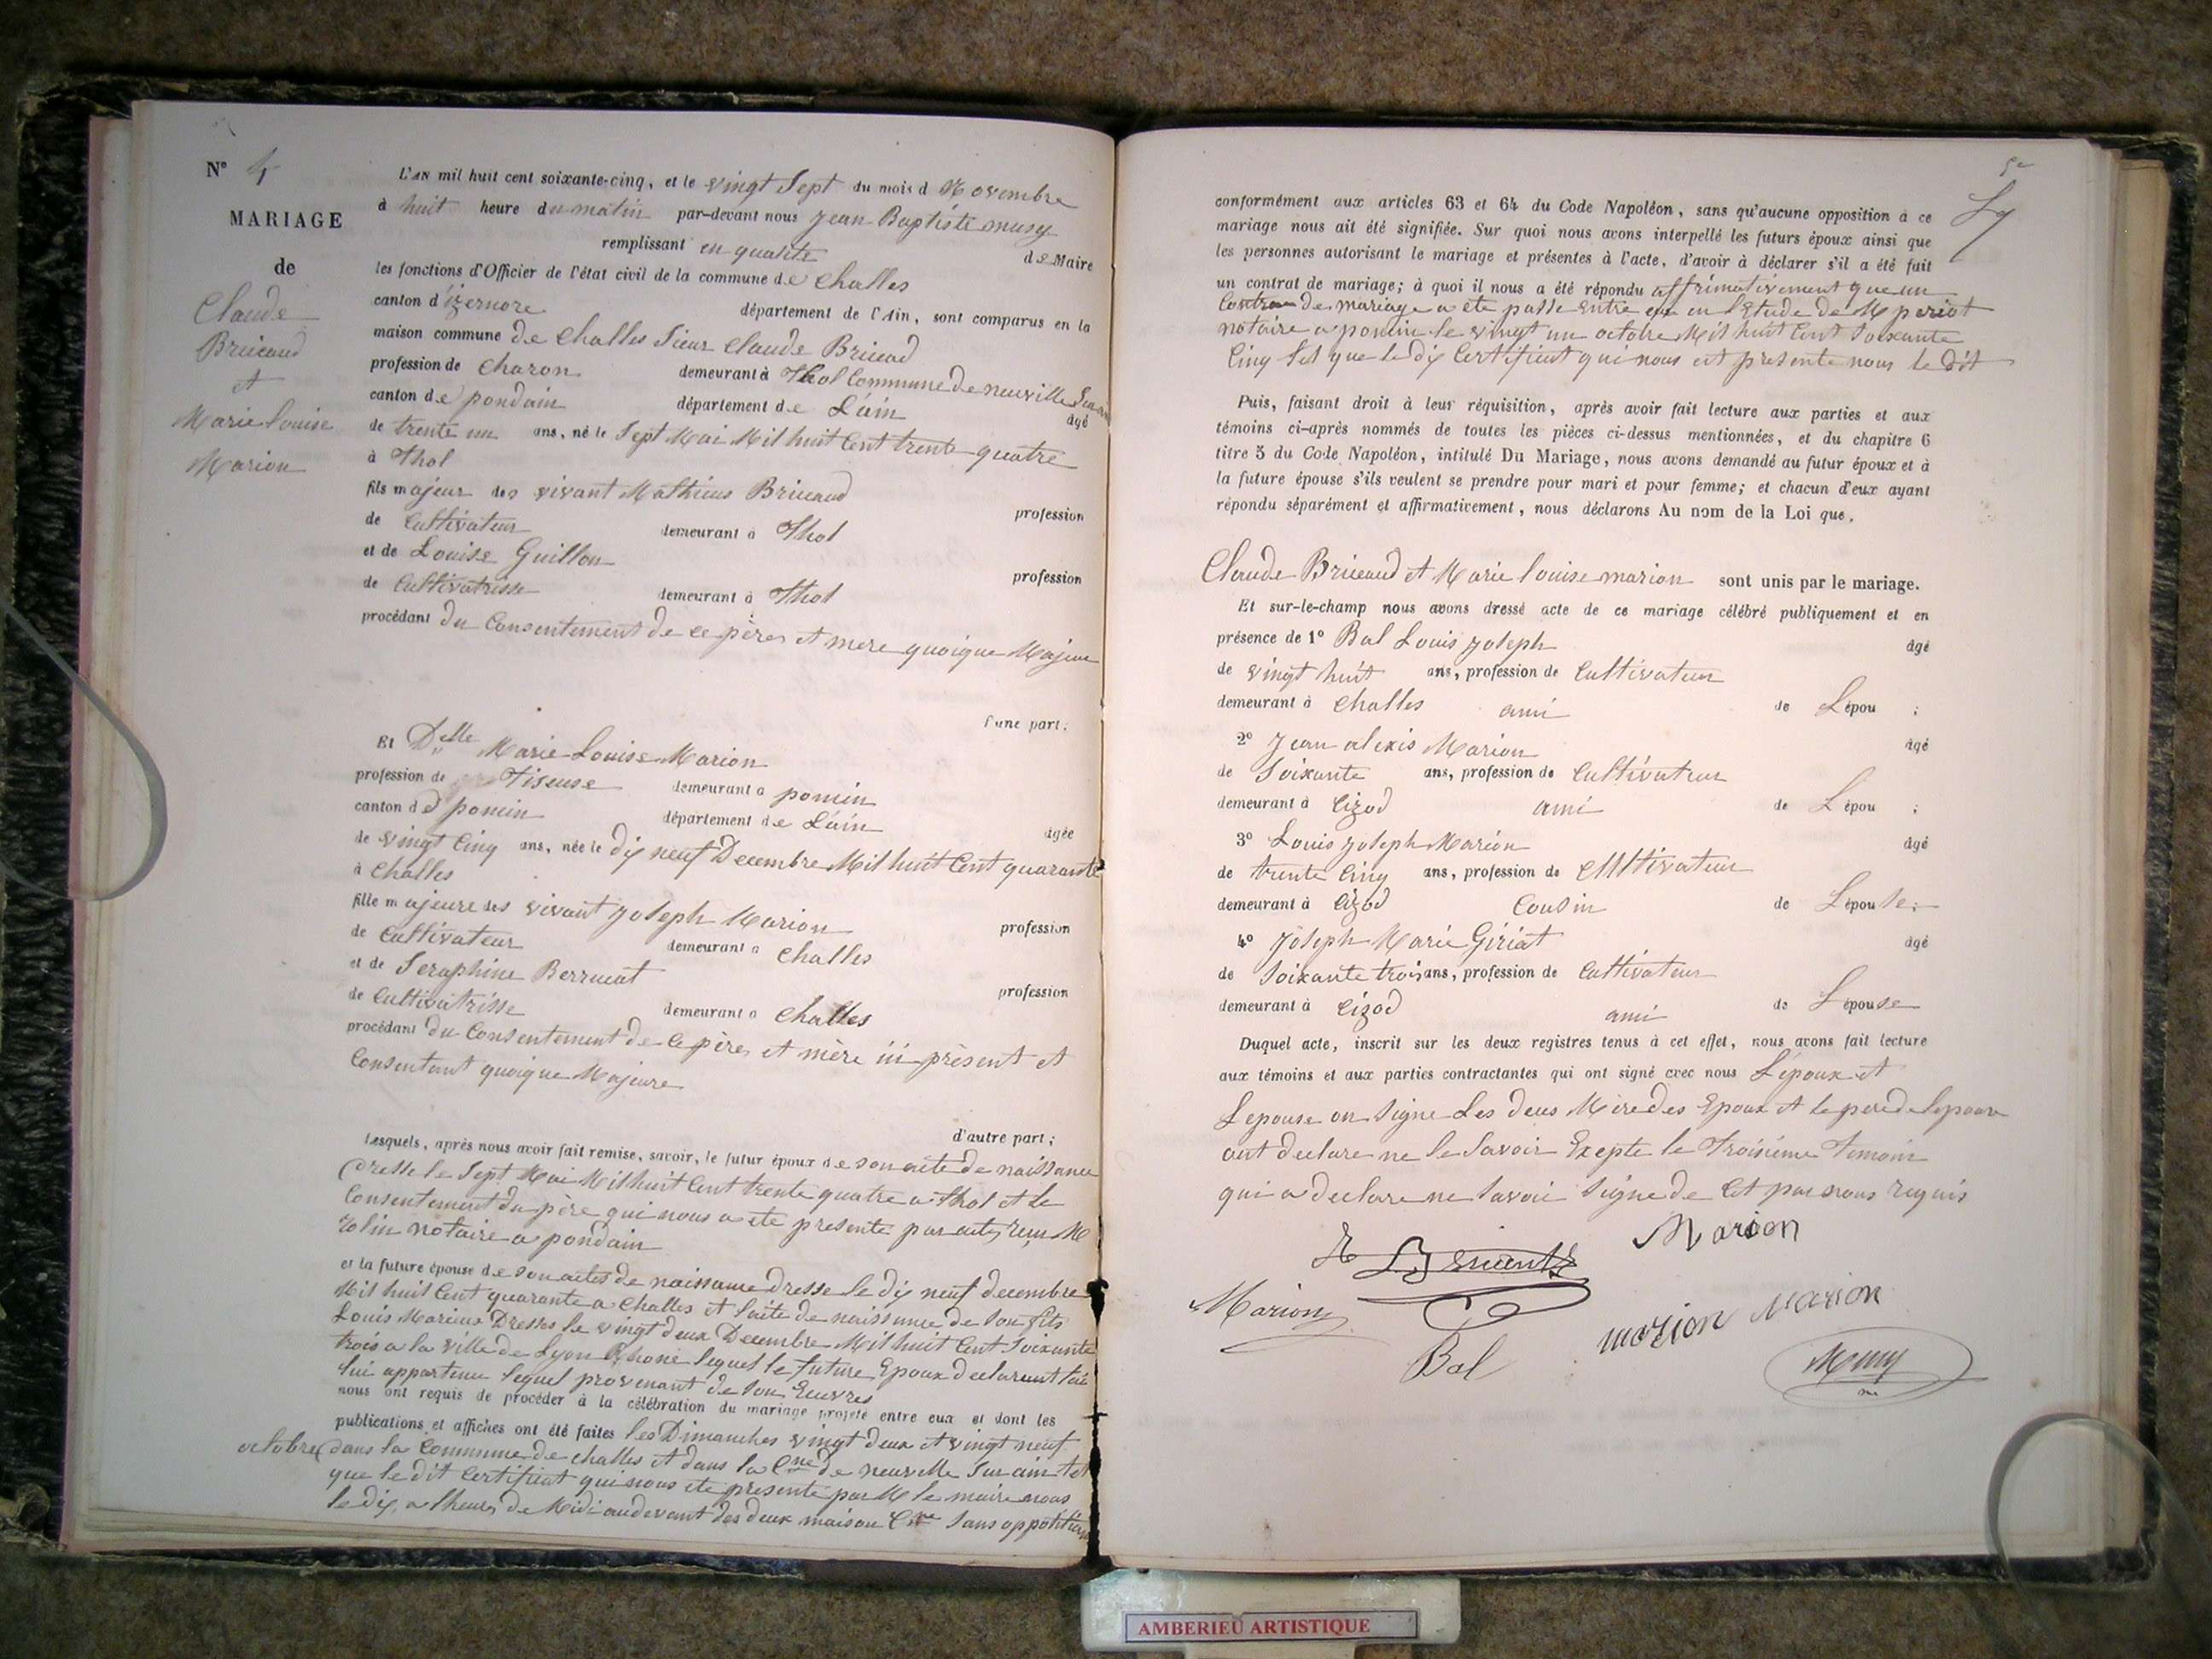 N° 4
MARIAGE
de
Claude
Bricaud
et
Marie Louise
Marion
L'AN mil huit cent soixante-cinq, et le vingt Sept du mois d Novembre
à huit heure du matin par-devant nous Jean Baptiste musy
remplissant en qualite de Maire
les fonctions d'Officier de l'état civil de la commune de Challes
canton d'izernore département de l'Ain, sont comparus en la
maison commune de Challes Sieur Claude Bricaud
profession de Charon demeurant à Thol Commune de neuville Sur ain
canton de pondain département de L'ain âgé
de trente un ans, né le Sept Mai Mil huit Cent trente quatre
à Thol
fils majeur des vivant Mathieus Bricaud profession
de Cultivateur demeurant à Thol
et de Louise Guillon profession
de Cultivatrisse demeurant à Thol
procédant du Consentement de ce pères et mere quoique Majeur
d'une part;
Et Delle Marie Louise Marion
profession de Tiseuse demeurant a pomin
canton de pomin département de L'ain âgée
de vingt Cinq ans, née le dix neuf Decembre Mil huit Cent quarante
à Challes
fille majeure des vivant Joseph Marion profession
de Cultivateur demeurant a Challes
et de Seraphine Berrucat profession
de Cultivatrisse demeurant a Challes
procédant du Consentement de ce pères et mère ici présent et
Consentant quoique Majeure
d'autre part;
Lesquels, après nous avoir fait remise, savoir, le futur époux de son acte de naissance
Dresse le Sept Mai Mil huit Cent trente quatre a Thol et le
Consentement du père qui nous a ete presente par acte reçu M
notaire a pondain
et la future épouse de son actes de naissance dresse le dix neuf decembre
Mil huit Cent quarante a Challes et suite de naissance de son fils
Louis Marius Dresses le vingt deux Decembre Mil huit Cent Soixante
trois a la ville de Lyon Rhone lequel le future Epoux declarent
lui appartenu lequel provenant de Son Euvres
nous ont requis de procéder à la célébration du mariage projeté entre eux et dont les
publications et affiches ont été faites les Dimanches vingt deux et vingt neuf
octobre dans la Commune de Challes et dans la Cne de neuville Sur ain tel
que le dit Certificat qui nous ete presente par M le maire nous
le dix, a lheure de Midi audevant des deux maison Cne Sans oppotition
conformément aux articles 63 et 64 du Code Napoléon, sans qu'aucune opposition à ce
mariage nous ait été signifiée. Sur quoi nous avons interpellé les futurs époux ainsi que
les personnes autorisant le mariage et présentes à l'acte, d'avoir à déclarer s'il a été fait
un contrat de mariage; à quoi il nous a été répondu affrimativement que un
Contra de mariage a ete passe Entre eu en l'Etude de M periot
notaire a pomin le vingt un octobre Mil huit Cent Soixante
Cinq tel que le dix Certificat qui nous est presente nous le dit
Puis, faisant droit à leur réquisition, après avoir fait lecture aux parties et aux
témoins ci-après nommés de toutes les pièces ci-dessus mentionnées, et du chapitre 6
titre 5 du Code Napoléon, intitulé Du Mariage, nous avons demandé au futur époux et à
la future épouse s'ils veulent se prendre pour mari et pour femme; et chacun d'eux ayant
répondu séparément et affirmativement, nous déclarons Au nom de la Loi que,
Claude Bricaud et Marie louise marion sont unis par le mariage.
Et sur-le-champ nous avons dressé acte de ce mariage célébré publiquement et en
présence de 1° Bal Louis Joseph âgé
de vingt huit ans, profession de Cultivateur
demeurant à Challes ami de L épou ;
2° Jean alexis Marion âgé
de Soixante ans, profession de Cultivateur
demeurant à Cizod ami de L épou ;
3° Louis Joseph Marion âgé
de trente Cinq ans, profession de Cultivateur
demeurant à Cizod Cousin de L épouse;
4° Joseph Marie Giriat âgé
de Soixante trois ans, profession de Cultivateur
demeurant à Cizod ami de L épouse
Duquel acte, inscrit sur les deux registres tenus à cet effet, nous avons fait lecture
aux témoins et aux parties contractantes qui ont signé avec nous L'époux et
Lepouse on Signe Les deus Mère des Epoux et le pere de lepouse
ont declare ne le Savoir Exepte le troisième Temoin
qui a declare ne Savoir Signe de Cet par nous requis
Marion
Marion
Bal
marion Marion
Musy
AMBERIEU ARTISTIQUE